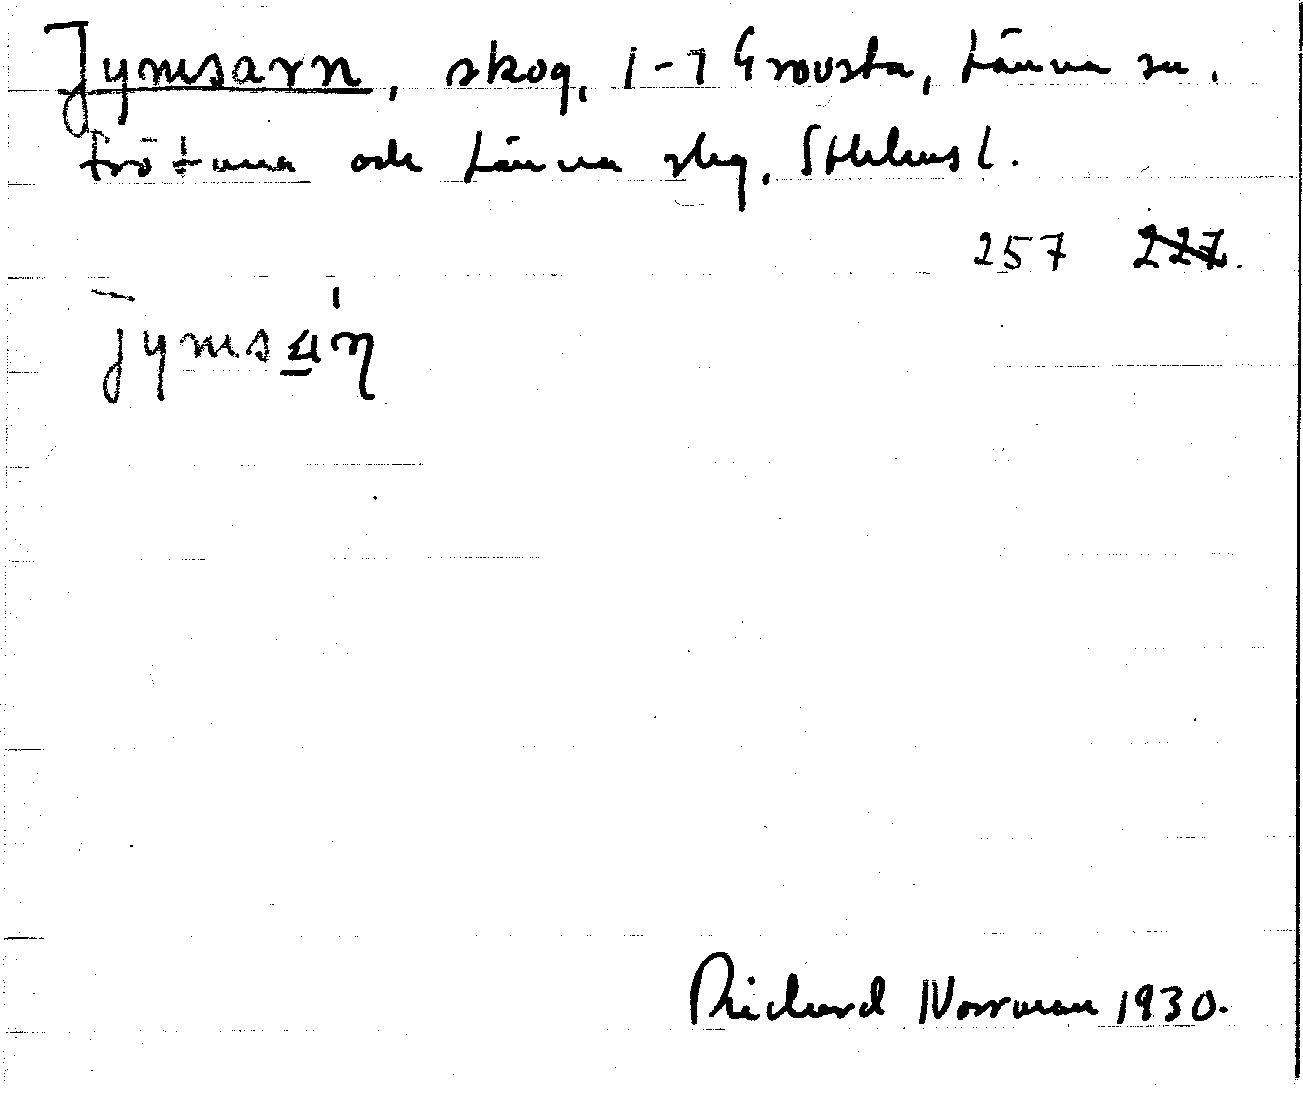 Jymsarn, skog, 1-7 Grovsta, Länna sn.
Frötuna och Länna skg, Sthlms l.
257 227.
jymsa̠η
Richard Norrman 1930.